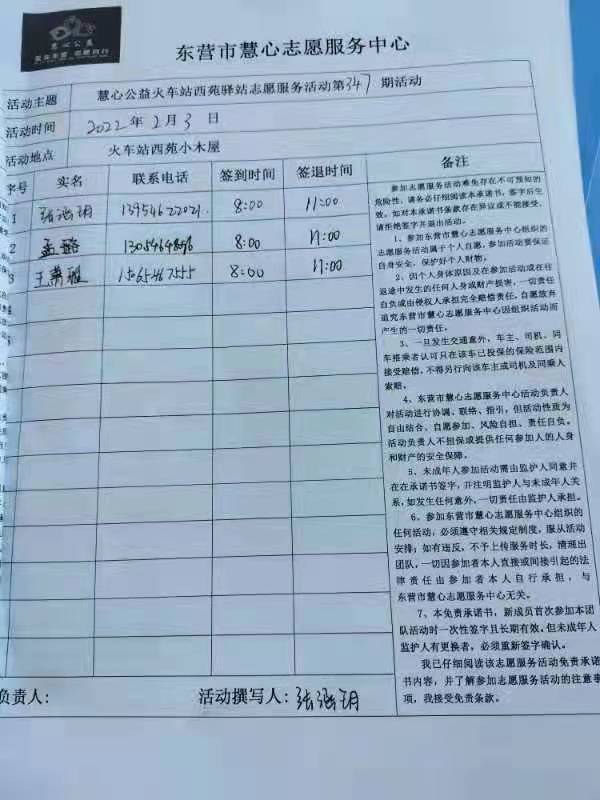 慧心公益
东营市慧心志愿服务中心
活动主题 慧心公益火车站西苑驿站志愿服务活动第347期活动
活动时间 2022年2月3日
活动地点 火车站西苑小木屋
字号 实名 联系电话 签到时间 签退时间 备注
1 张涵玥 8:00 11:00
2 孟璐 8:00 11:00
3 王箫雅 15654467555 8:00 11:00
参加志愿服务活动难免存在不可预知的
危险性,请务必仔细阅读本承诺书,签字后生
效。如对本承诺书条款存在异议或不能接受,
请拒绝签字并退出活动。
1、参加东营市慧心志愿服务中心组织的
志愿服务活动属于个人自愿,参加活动要保证
自身安全、保护好个人财物;
2、因个人身体原因及在参加活动或在往
返途中发生的任何人身或财产损害,一切责任
自负或由侵权人承担完全赔偿责任,自愿放弃
追究东营市慧心志愿服务中心因组织活动而
产生的一切责任。
3、一旦发生交通意外,车主、司机、同
车搭乘者认可只在该车已投保的保险范围内
接受赔偿,不得另行向该车主或司机及同乘人
索赔。
4、东营市慧心志愿服务中心活动负责人
对活动进行协调、联络、指引,但活动性质为
自由结合、自愿参加、风险自担、责任自负。
活动负责人不担保或提供任何参加人的人身
和财产的安全保障。
5、未成年人参加活动需由监护人同意并
在在承诺书签字,并注明监护人与未成年人关
系,如发生任何意外,一切责任由监护人承担。
6、参加东营市慧心志愿服务中心组织的
任何活动,必须遵守相关规定制度,服从活动
安排;如有违反,不予上传服务时长,清理出
团队,一切因参加者本人直接或间接引起的法
律责任由参加者本人自行承担,与
东营市慧心志愿服务中心无关。
7、本免责承诺书,新成员首次参加本团
队活动时一次性签字且长期有效。但未成年人
监护人有更换者,必须重新签字确认。
我已仔细阅读该志愿服务活动免责承诺
书内容,并了解参加志愿服务活动的注意事
项,我接受免责条款。
负责人: 活动撰写人:张涵玥